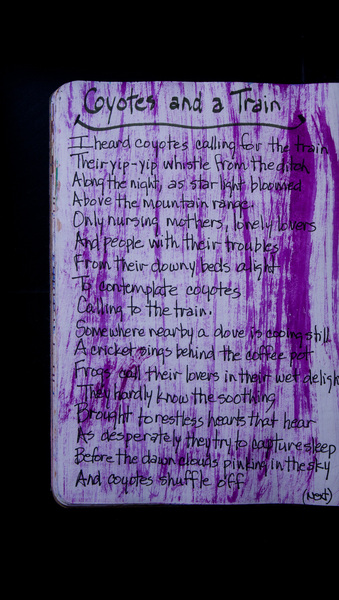 Coyotes and a Train
I heard coyotes calling for the train
Their yip-yip whistle from the ditch
Along the night, as starlight bloomed
Above the mountain range.
Only nursing mothers, lonely lovers
And people with their troubles
From their downy beds alight
To contemplate coyotes
Calling to the train.
Somewhere nearby a dove is cooing still
A cricket sings behind the coffee pot
Frogs call their lovers in their wet deligh
They hardly know the soothing
Brought to restless hearts that hear
As desperately they try to capture sleep
Before the dawn clouds pinking in the sky
And coyotes shuffle off
(Next)